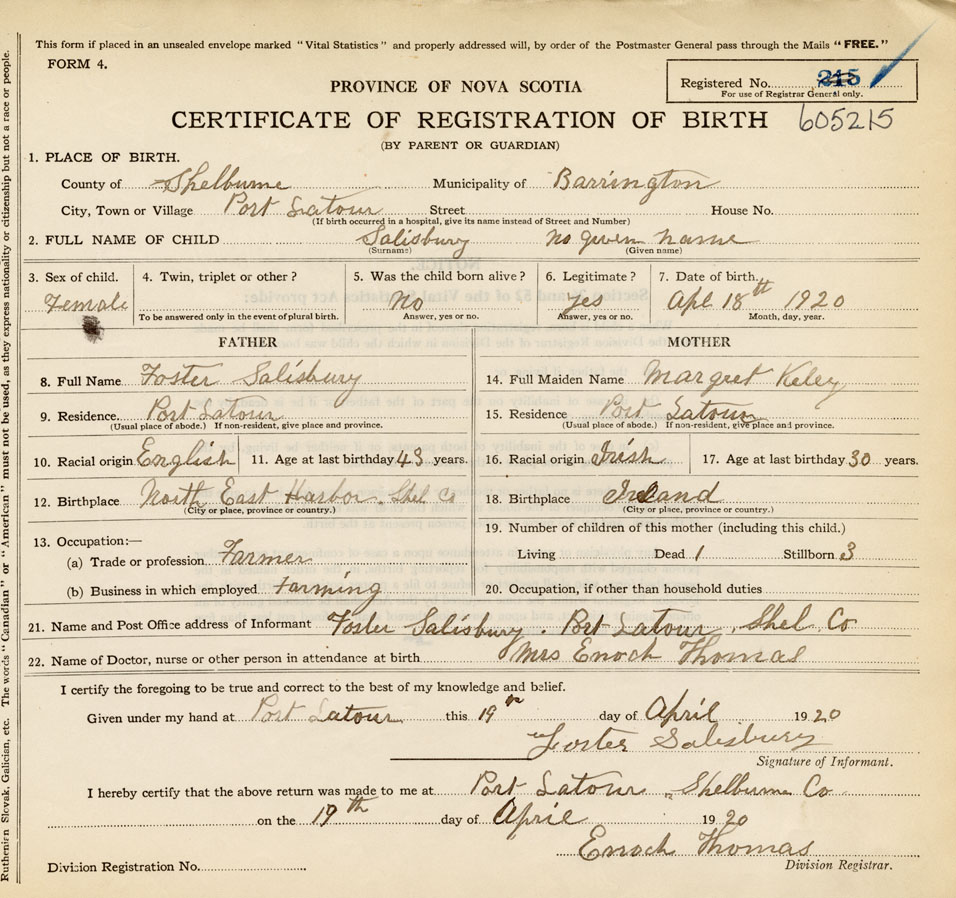 This form if placed in an unsealed envelope marked "Vital Statistics" and properly addressed will, by order of the Postmaster General pass through the Mails "FREE."
FORM 4.
Registered No. 215
For use of Registrar General only.
PROVINCE OF NOVA SCOTIA
CERTIFICATE OF REGISTRATION OF BIRTH 605215
(BY PARENT OR GUARDIAN)
1. PLACE OF BIRTH.
County of Shelburne Municipality of Barrington
City, Town or Village Port Latour Street House No.
(If birth occurred in a hospital, give its name instead of Street and Number)
2. FULL NAME OF CHILD Salisbury no given name
(Surname) (Given name)
3. Sex of child. 4. Twin, triplet or other? 5. Was the child born alive? 6. Legitimate? 7. Date of birth.
Female No yes Apl 18th 1920
To be answered only in the event of plural birth. Answer, yes or no. Answer, yes or no. Month, day, year.
FATHER MOTHER
8. Full Name Foster Salisbury 14. Full Maiden Name Margret Keley
9. Residence. Port Latour 15. Residence Port Latour
(Usual place of abode.) If non-resident, give place and province. (Usual place of abode.) If non-resident, give place and province.
10. Racial origin English 11. Age at last birthday 43 years. 16. Racial origin Irish 17. Age at last birthday 30 years.
12. Birthplace North East Harbor. Shel Co 18. Birthplace Ireland
(City or place, province or country.) (City or place, province or country.)
19. Number of children of this mother (including this child.)
13. Occupation:—
(a) Trade or profession Farmer Living Dead 1 Stillborn 3
(b) Business in which employed Farming 20. Occupation, if other than household duties
21. Name and Post Office address of Informant Foster Salisbury. Port Latour, Shel. Co
22. Name of Doctor, nurse or other person in attendance at birth Mrs Enoch Thomas
I certify the foregoing to be true and correct to the best of my knowledge and belief.
Given under my hand at Port Latour this 19th day of April 1920
Foster Salisbury
Signature of Informant.
I hereby certify that the above return was made to me at Port Latour, Shelburne Co
on the 19th day of April 1920
Enoch Thomas
Division Registration No. Division Registrar.
Ruthenian Slovak, Galician, etc. The words "Canadian" or "American" must not be used, as they express nationality or citizenship but not a race or people.